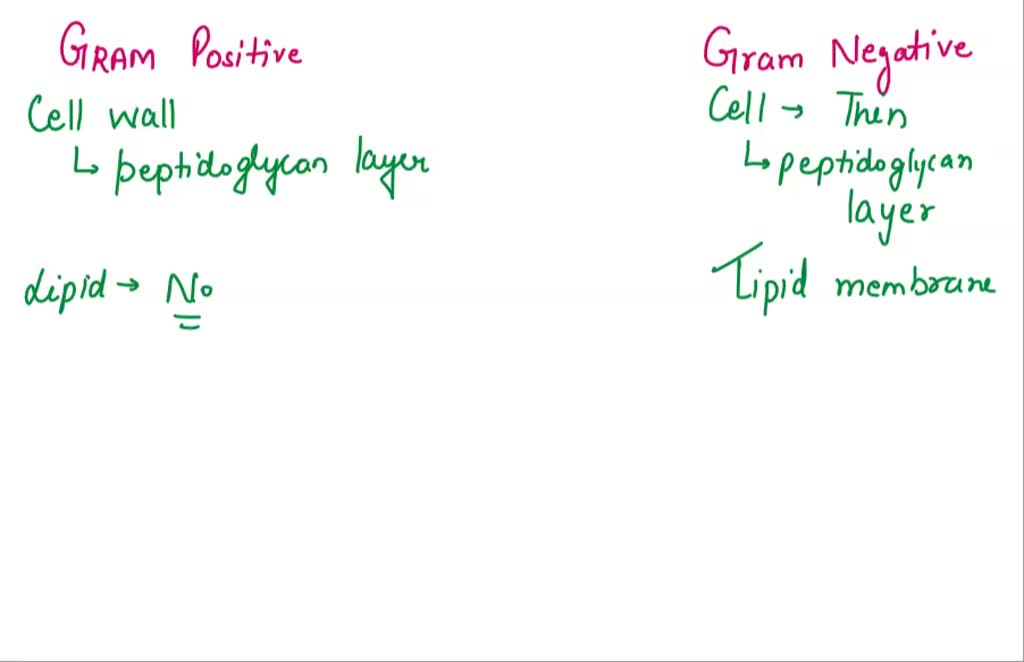 GRAM Positive
Cell wall
↳ peptidoglycan layer
Lipid → No
Gram Negative
Cell → Then
↳ peptidoglycan
layer
Lipid membrane